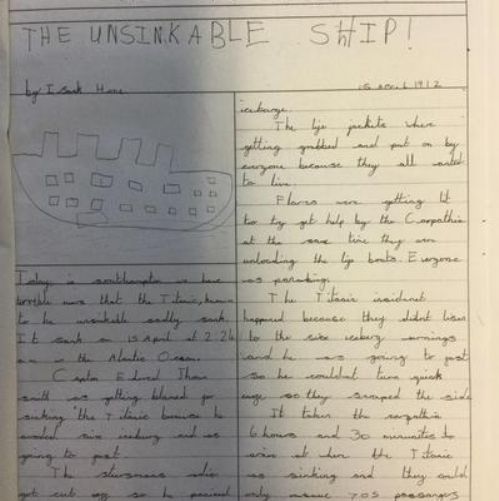 THE UNSINKABLE SHIP!
by Isark Hone
15 April 1912
Today in southhampton we have
terrible news that the Titanic, known
to be unsinkable sadly sank.
It sank on 15 April at 2:20
am in the Alantic Ocean.
Captin Edward Jhon
smith was getting blamed for
sinking the Titanic because he
avoided six iceburg and was
going to fast.
The
got cut off so he paniced
iceburge.
The life jackets where
getting grabbed and put on by
everyone because they all wanted
to live.
Flares were getting lit
to try get help by the Carpathia
at the same time they were
unloading the life boats. Everyone
was panicking.
The Titanic insident
happened because they didnt lisen
to the six iceburg warnings
and he was going to fast
so he couldnt turn quick
so they scraped the side
It taken the carpathia
6 hours and 30 minuites to
arive at when the Titanic
was sinking and they could
only 705 passengers